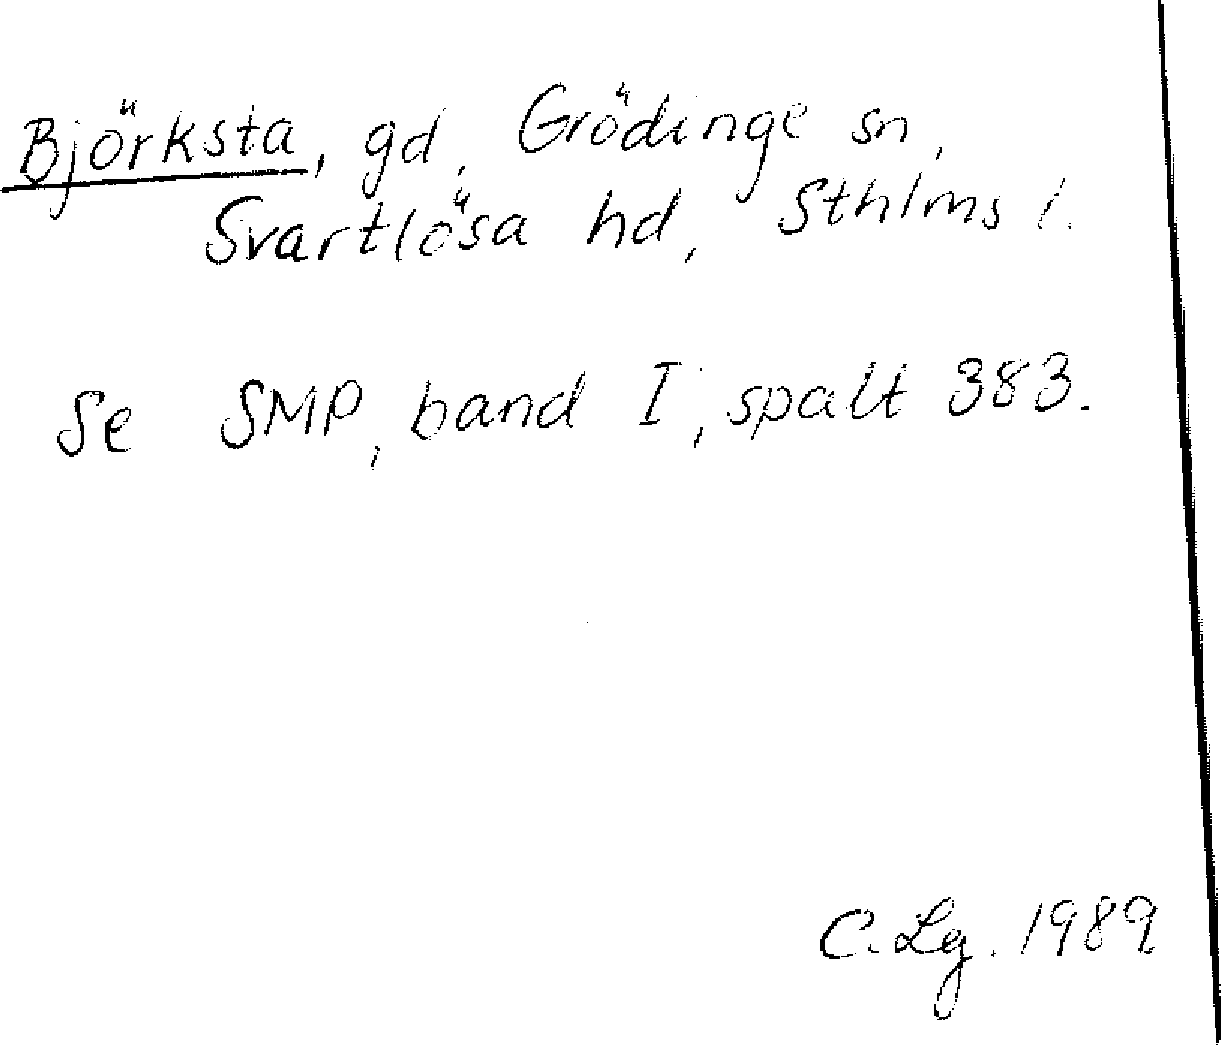 Björksta, gd, Grödinge sn,
Svartlösa hd, Sthlms l.
Se SMP, band I, spalt 383.
C. Lg. 1989